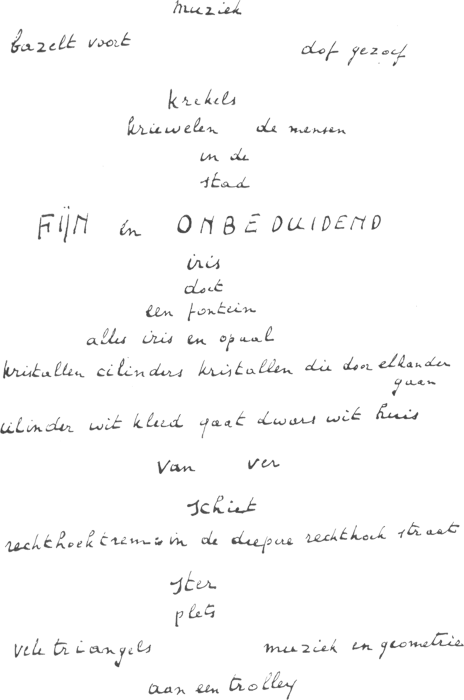 muziek
bazelt voort dof gezoef
krekels
kriewelen de mensen
in de
stad
FIJN en ONBEDUIDEND
iris
doet
een fontein
alles iris en opaal
kristallen cilinders kristallen die door elkander
gaan
cilinder wit kleed gaat dwars wit huis
van ver
schiet
rechthoektrem in de diepere rechthoek straat
ster
plets
vele triangels muziek en geometrie
aan een trolley